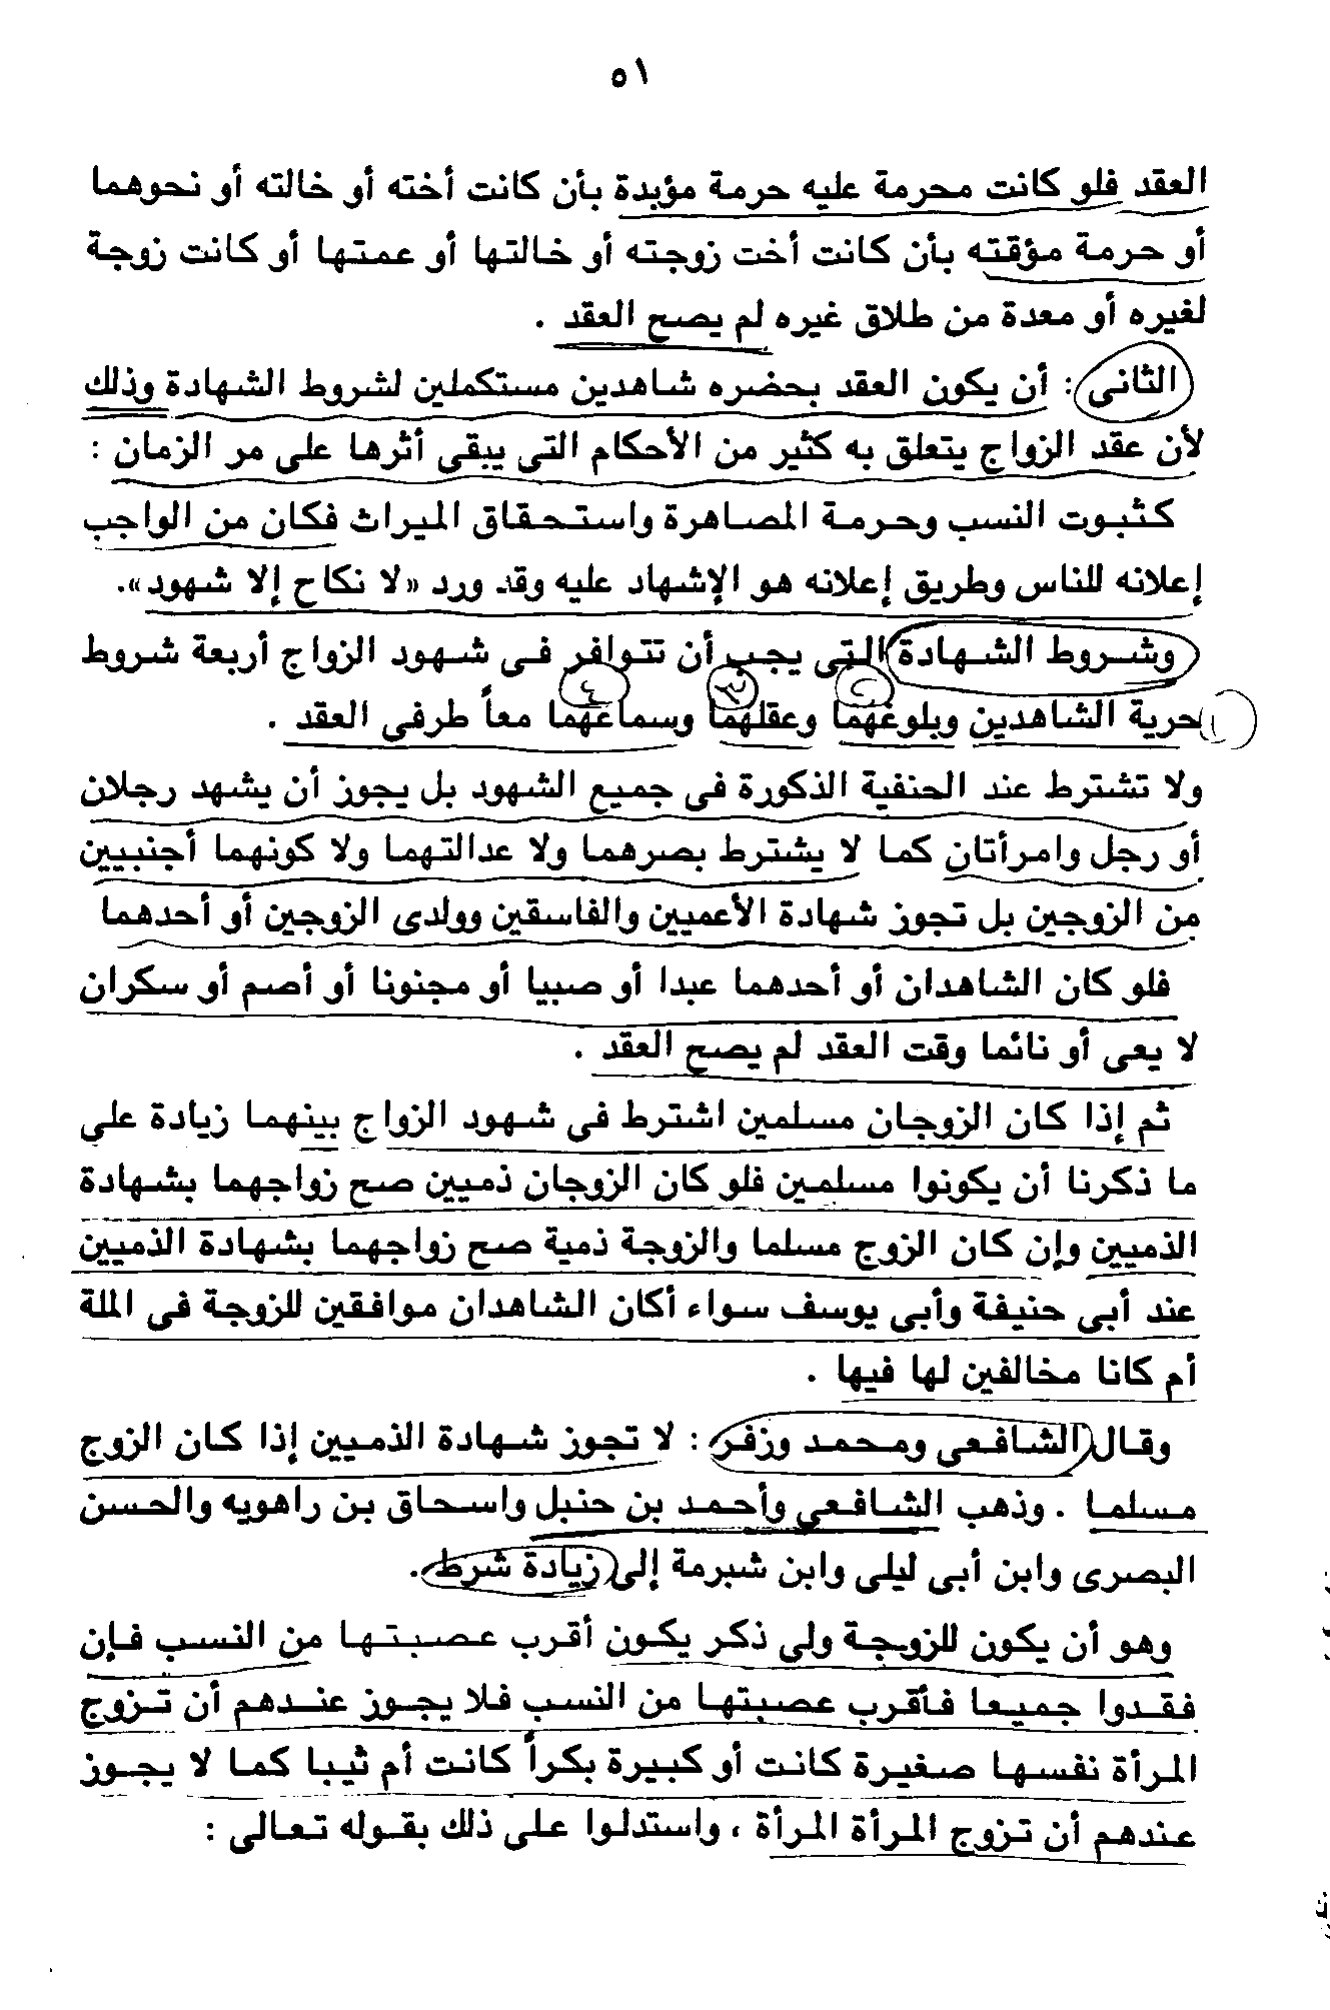 ٥١
العقد فلو كانت محرمة عليه حرمة مؤبدة بأن كانت أخته أو خالته أو نحوهما
أو حرمة مؤقته بأن كانت أخت زوجته أو خالتها أو عمتها أو كانت زوجة
لغيره أو معدة من طلاق غيره لم يصح العقد .
الثانى : أن يكون العقد بحضره شاهدين مستكملين لشروط الشهادة وذلك
لأن عقد الزواج يتعلق به كثير من الأحكام التى يبقى أثرها على مر الزمان :
كثبوت النسب وحرمة المصاهرة واستحقاق الميراث فكان من الواجب
إعلانه للناس وطريق إعلانه هو الإشهاد عليه وقد ورد «لا نكاح إلا شهود».
وشروط الشهادة التى يجب أن تتوافر فى شهود الزواج أربعة شروط
حرية الشاهدين وبلوغهما وعقلهما وسماعهما معاً طرفى العقد .
ولا تشترط عند الحنفية الذكورة فى جميع الشهود بل يجوز أن يشهد رجلان
أو رجل وامرأتان كما لا يشترط بصرهما ولا عدالتهما ولا كونهما أجنبيين
من الزوجين بل تجوز شهادة الأعميين والفاسقين وولدى الزوجين أو أحدهما
فلو كان الشاهدان أو أحدهما عبدا أو صبيا أو مجنونا أو أصم أو سكران
لا يعى أو نائما وقت العقد لم يصح العقد .
ثم إذا كان الزوجان مسلمين اشترط فى شهود الزواج بينهما زيادة على
ما ذكرنا أن يكونوا مسلمين فلو كان الزوجان ذميين صح زواجهما بشهادة
الذميين وإن كان الزوج مسلما والزوجة ذمية صح زواجهما بشهادة الذميين
عند أبى حنيفة وأبى يوسف سواء أكان الشاهدان موافقين للزوجة فى الملة
أم كانا مخالفين لها فيها .
وقال الشافعى ومحمد وزفر : لا تجوز شهادة الذميين إذا كان الزوج
مسلما . وذهب الشافعي وأحمد بن حنبل واسحاق بن راهويه والحسن
البصرى وابن أبى ليلى وابن شبرمة إلى زيادة شرط.
وهو أن يكون للزوجة ولى ذكر يكون أقرب عصبتها من النسب فإن
فقدوا جميعا فأقرب عصبتها من النسب فلا يجوز عندهم أن تزوج
المرأة نفسها صغيرة كانت أو كبيرة بكراً كانت أم ثيبا كما لا يجوز
عندهم أن تزوج المرأة المرأة ، واستدلوا على ذلك بقوله تعالى :